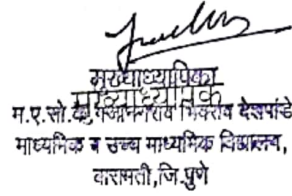 मुख्याध्यापिका
मुख्याध्यापक
म.ए.सो.चे, गजाननराव भिवराव देशपांडे
माध्यमिक व उच्च माध्यमिक विद्यालय,
बारामती,जि.पुणे